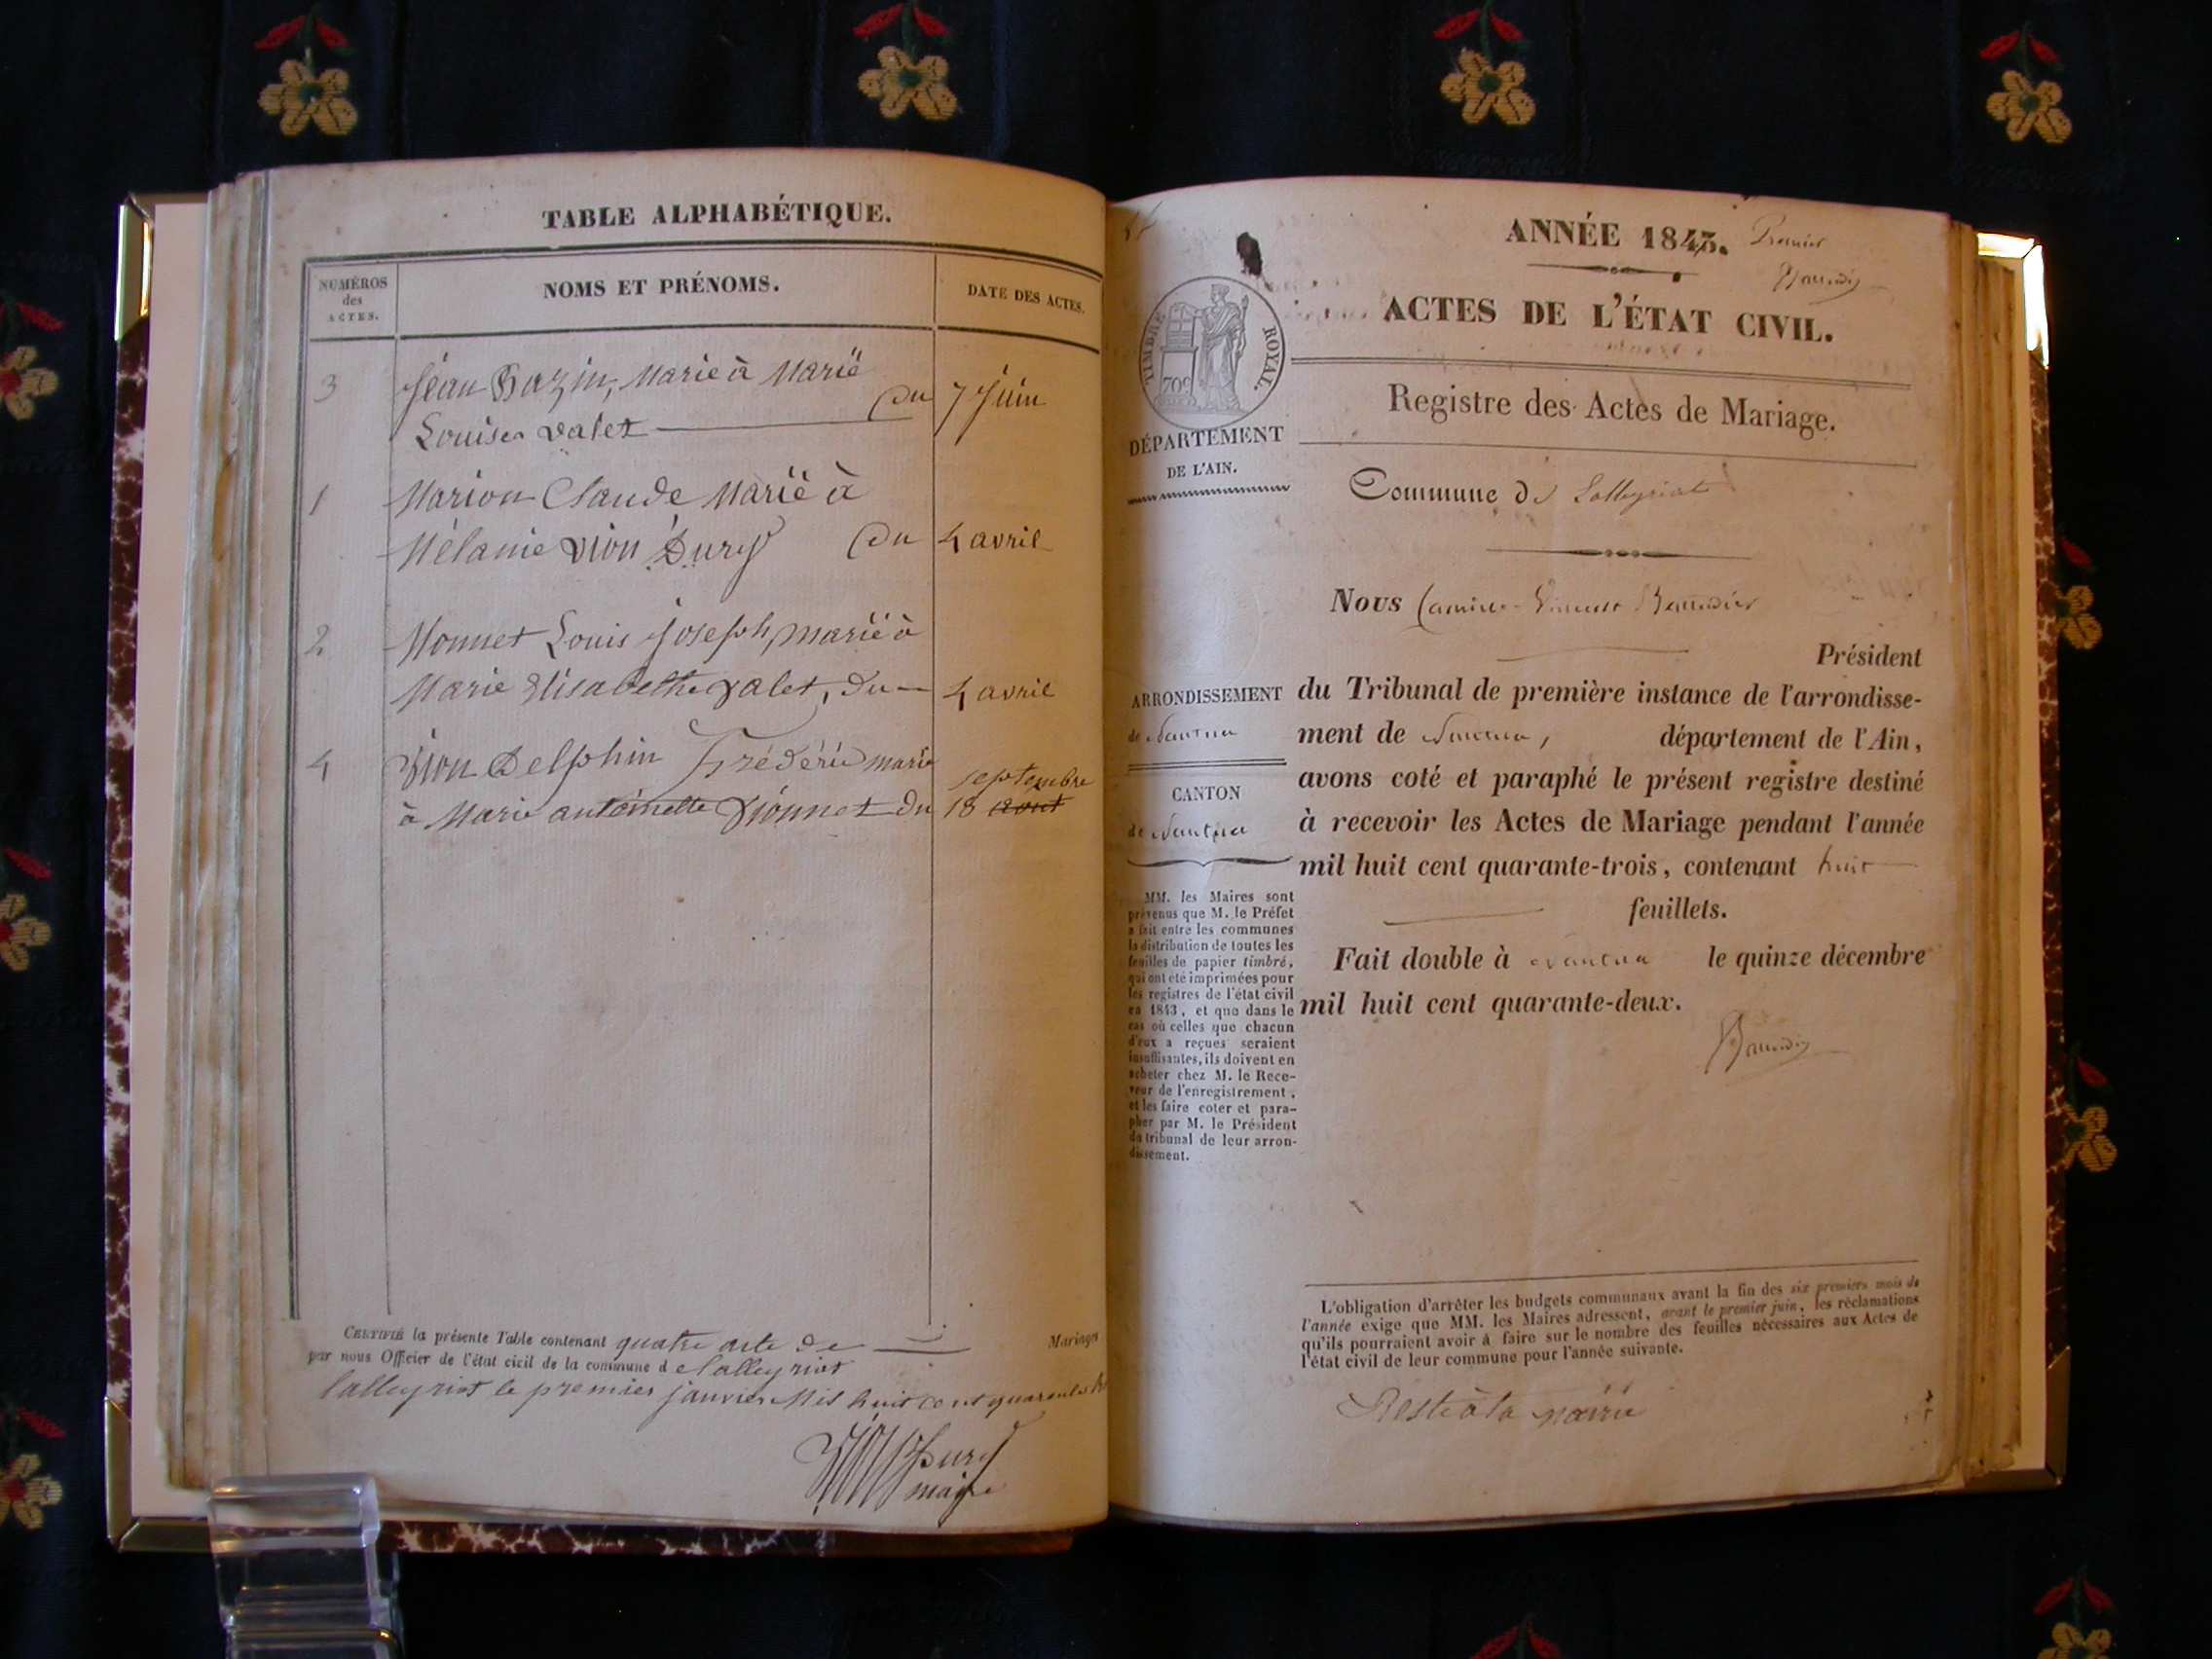 TABLE ALPHABÉTIQUE.
NUMÉROS
des
ACTES.
NOMS ET PRÉNOMS.
DATE DES ACTES.
3 Jean Bazin, Marié à Marie
Louise Valet du 7 Juin
1 Marion Claude Marié à
Mélanie Vion Dury du 4 avril
2 Monnet Louis Joseph, marié à
Marie Elisabethe Valet, du 4 avril
4 Vion Delphin Frédéric marié
septembre
à Marie antoinette Vionnet du 18 aout
CERTIFIÉ la présente Table contenant quatre acte de Mariages
par nous Officier de l'état civil de la commune de lalleyriat
lalleyriat le premier janvier Mil huit cent quarante
Dury
maire
ANNÉE 1843. Premier
ACTES DE L'ÉTAT CIVIL.
TIMBRE ROYAL.
70c
Registre des Actes de Mariage.
DÉPARTEMENT
DE L'AIN.
Commune de Lalleyriat
Nous Camille Vincent
Président
ARRONDISSEMENT
de Nantua
CANTON
de Nantua
du Tribunal de première instance de l'arrondisse-
ment de Nantua, département de l'Ain,
avons coté et paraphé le présent registre destiné
à recevoir les Actes de Mariage pendant l'année
mil huit cent quarante-trois, contenant huit
feuillets.
Fait double à Nantua le quinze décembre
mil huit cent quarante-deux.
MM. les Maires sont
prévenus que M. le Préfet
a fait entre les communes
la distribution de toutes les
feuilles de papier timbré,
qui ont été imprimées pour
les registres de l'état civil
en 1843, et que dans le
cas où celles que chacun
d'eux a reçues seraient
insuffisantes, ils doivent en
acheter chez M. le Rece-
veur de l'enregistrement,
et les faire coter et para-
pher par M. le Président
du tribunal de leur arron-
dissement.
L'obligation d'arrêter les budgets communaux avant la fin des six premiers mois de
l'année exige que MM. les Maires adressent, avant le premier juin, les réclamations
qu'ils pourraient avoir à faire sur le nombre des feuilles nécessaires aux Actes de
l'état civil de leur commune pour l'année suivante.
Reste à la mairie